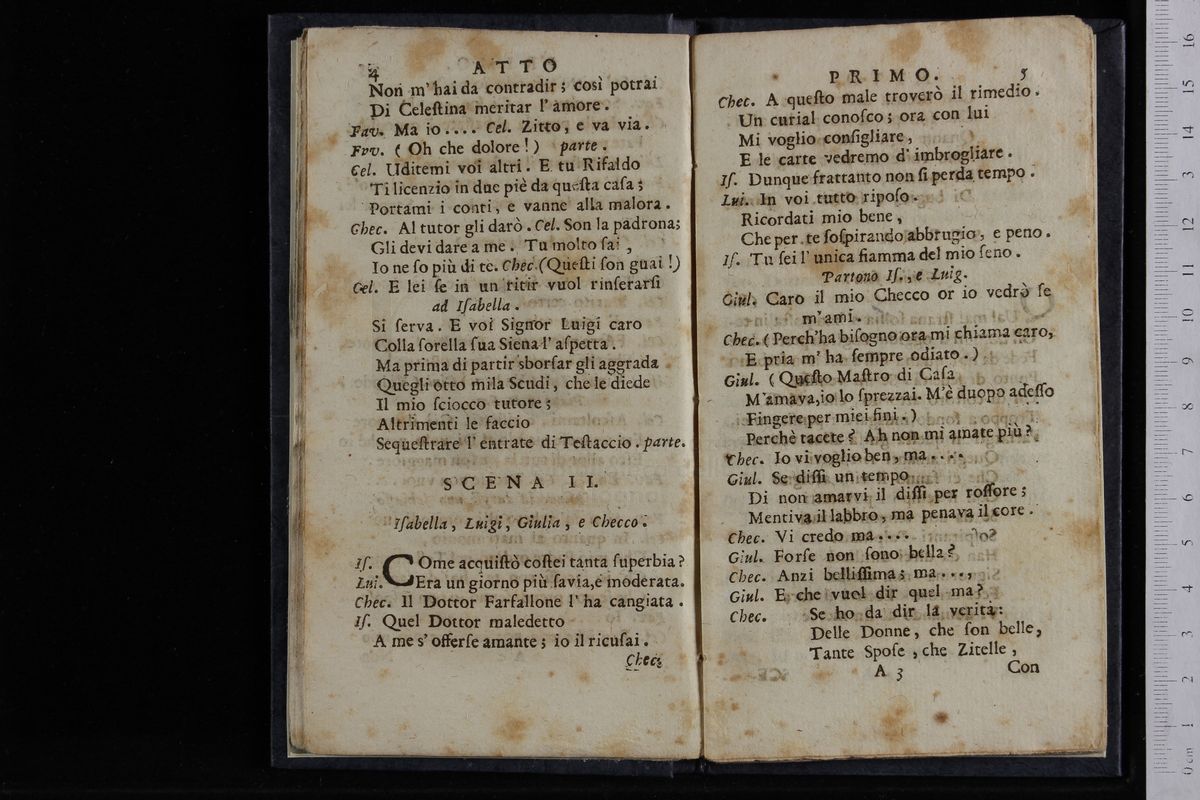 4 ATTO
Non m' hai da contradir; così potrai
Di Celeſtina meritar l' amore.
Fav. Ma io.... Cel. Zitto, e va via.
Fvv. ( Oh che dolore! ) parte.
Cel. Uditemi voi altri. E tu Rifaldo
Ti licenzio in due piè da queſta caſa;
Portami i conti, e vanne alla malora.
Chec. Al tutor gli darò. Cel. Son la padrona;
Gli devi dare a me. Tu molto ſai,
Io ne ſo più di te. Chec. (Queſti ſon guai!)
Cel. E lei ſe in un ritir vuol rinſerarſi
ad Iſabella.
Si ſerva. E voi Signor Luigi caro
Colla ſorella ſua Siena l' aſpetta.
Ma prima di partir sborſar gli aggrada
Quegli otto mila Scudi, che le diede
Il mio ſciocco tutore;
Altrimenti le faccio
Sequeſtrare l' entrate di Teſtaccio. parte.
SCENA II.
Iſabella, Luigi, Giulia, e Checco.
Iſ. COme acquiſtò coſtei tanta ſuperbia?
Lui. Era un giorno più ſavia, e moderata.
Chec. Il Dottor Farfallone l' ha cangiata.
Iſ. Quel Dottor maledetto
A me s' offerſe amante; io il ricuſai.
Chec.
PRIMO. 5
Chec. A queſto male troverò il rimedio.
Un curial conoſco; ora con lui
Mi voglio conſigliare,
E le carte vedremo d' imbrogliare.
Iſ. Dunque frattanto non ſi perda tempo.
Lui. In voi tutto ripoſo.
Ricordati mio bene,
Che per te ſoſpirando abbrugio, e peno.
Iſ. Tu ſei l' unica fiamma del mio ſeno.
Partono Iſ., e Luig.
Giul. Caro il mio Checco or io vedrò ſe
m' ami.
Chec. (Perch'ha biſogno ora mi chiama caro,
E pria m' ha ſempre odiato.)
Giul. (Queſto Maſtro di Caſa
M'amava, io lo ſprezzai. M'è duopo adeſſo
Fingere per miei fini.)
Perchè tacete? Ah non mi amate più?
Chec. Io vi voglio ben, ma....
Giul. Se diſſi un tempo
Di non amarvi il diſſi per roſſore;
Mentiva il labbro, ma penava il core.
Chec. Vi credo ma....
Giul. Forſe non ſono bella?
Chec. Anzi belliſſima; ma....
Giul. E che vuol dir quel ma?
Chec. Se ho da dir la verità:
Delle Donne, che ſon belle,
Tante Spoſe, che Zitelle,
A 3 Con
0 cm 1 2 3 4 5 6 7 8 9 10 11 12 13 14 15 16